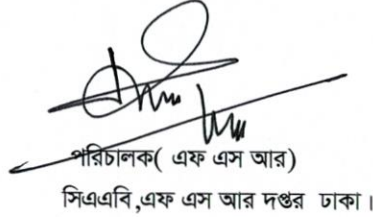 পরিচালক( এফ এস আর)
সিএএবি,এফ এস আর দপ্তর ঢাকা।